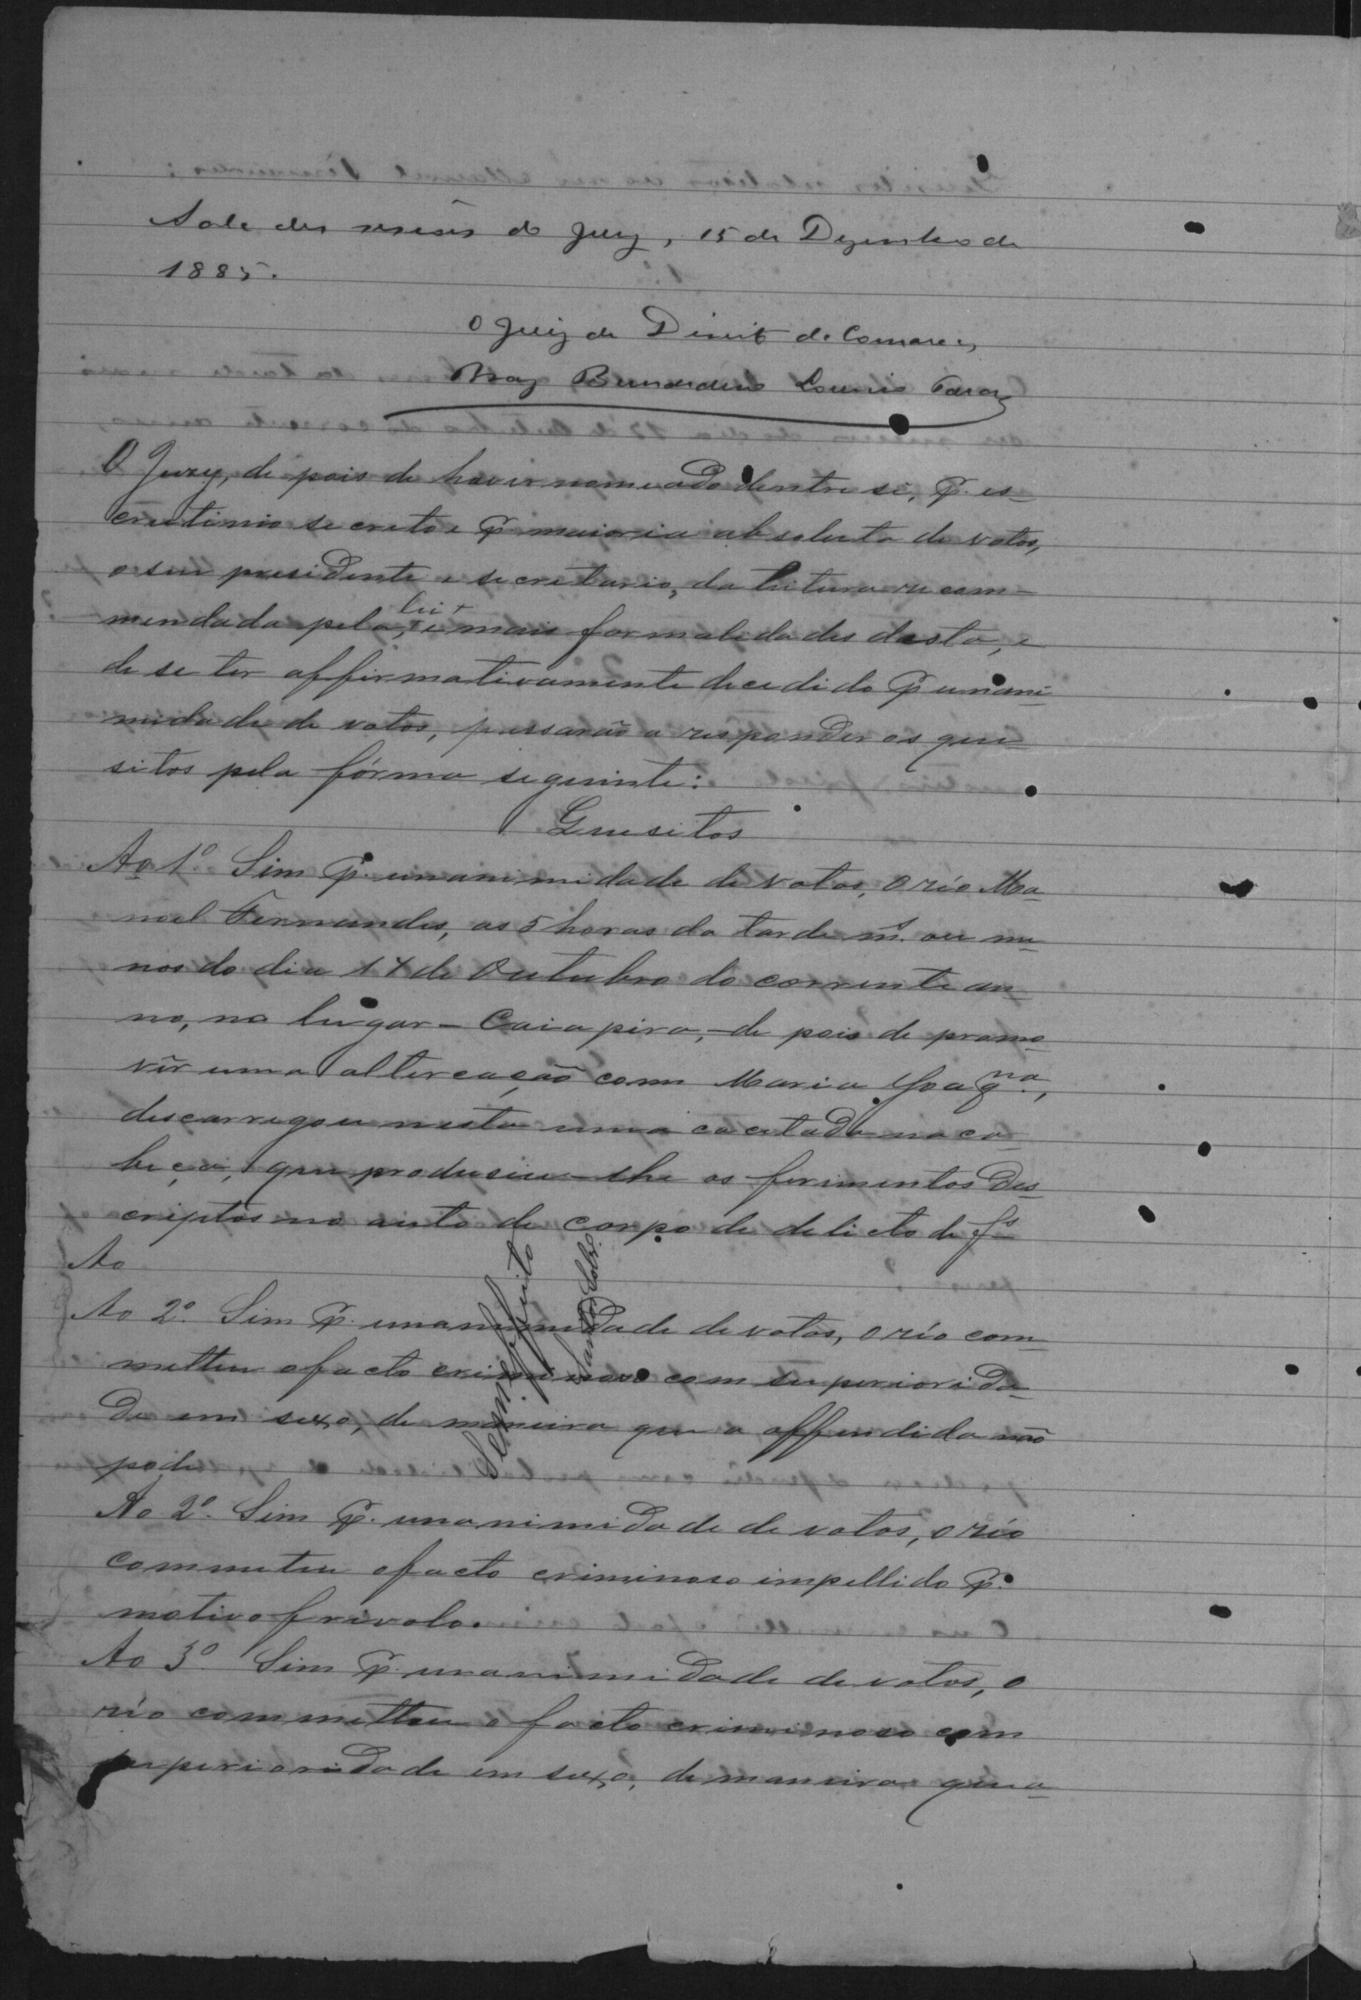 Sala das sessões do Jury, 15 de Dezembro de
1885.
O Juiz de Direito da Comarca,
Braz Bernardino Loureiro Tavares
O Jury, depois de haver nomeado dentre si, p. es-
crutinio secreto e p. maioria absoluta de votos,
o seu presidente e secretario, da leitura recom-
mendada pela lei, e mais formalidades desta, e
de se ter affirmativamente decedido p. unani-
midade de votos, passarão a responder os que-
sitos pela fórma seguinte:
Quesitos
Ao 1º Sim p. unanimidade de votos, o réo Ma-
noel Fernandes, as 5 horas da tarde m.s ou me-
nos do dia 17 de Outubro do corrente an-
no, no lugar - Caiapira, - depois de promo-
vêr uma altercação com Maria Joaq.na,
descarregou nesta uma cacetada na ca-
beça, que produsiu-lhe os ferimentos des-
criptos no auto de corpo de delicto de f.s
Ao
Ao 2º Sim p. unanimidade de votos, o réo com-
metteu o facto criminoso com superiorida-
de em sexo, de maneira que a offendida não
pode
Sem effeito
Santos Sobr.o
Ao 2º Sim p. unanimidade de votos, o réo
commeteu o facto criminoso impellido p.
motivo frivolo.
Ao 3º Sim p. unanimidade de votos, o
réo commetteu o facto criminoso com
superioridade em sexo, de maneira que a